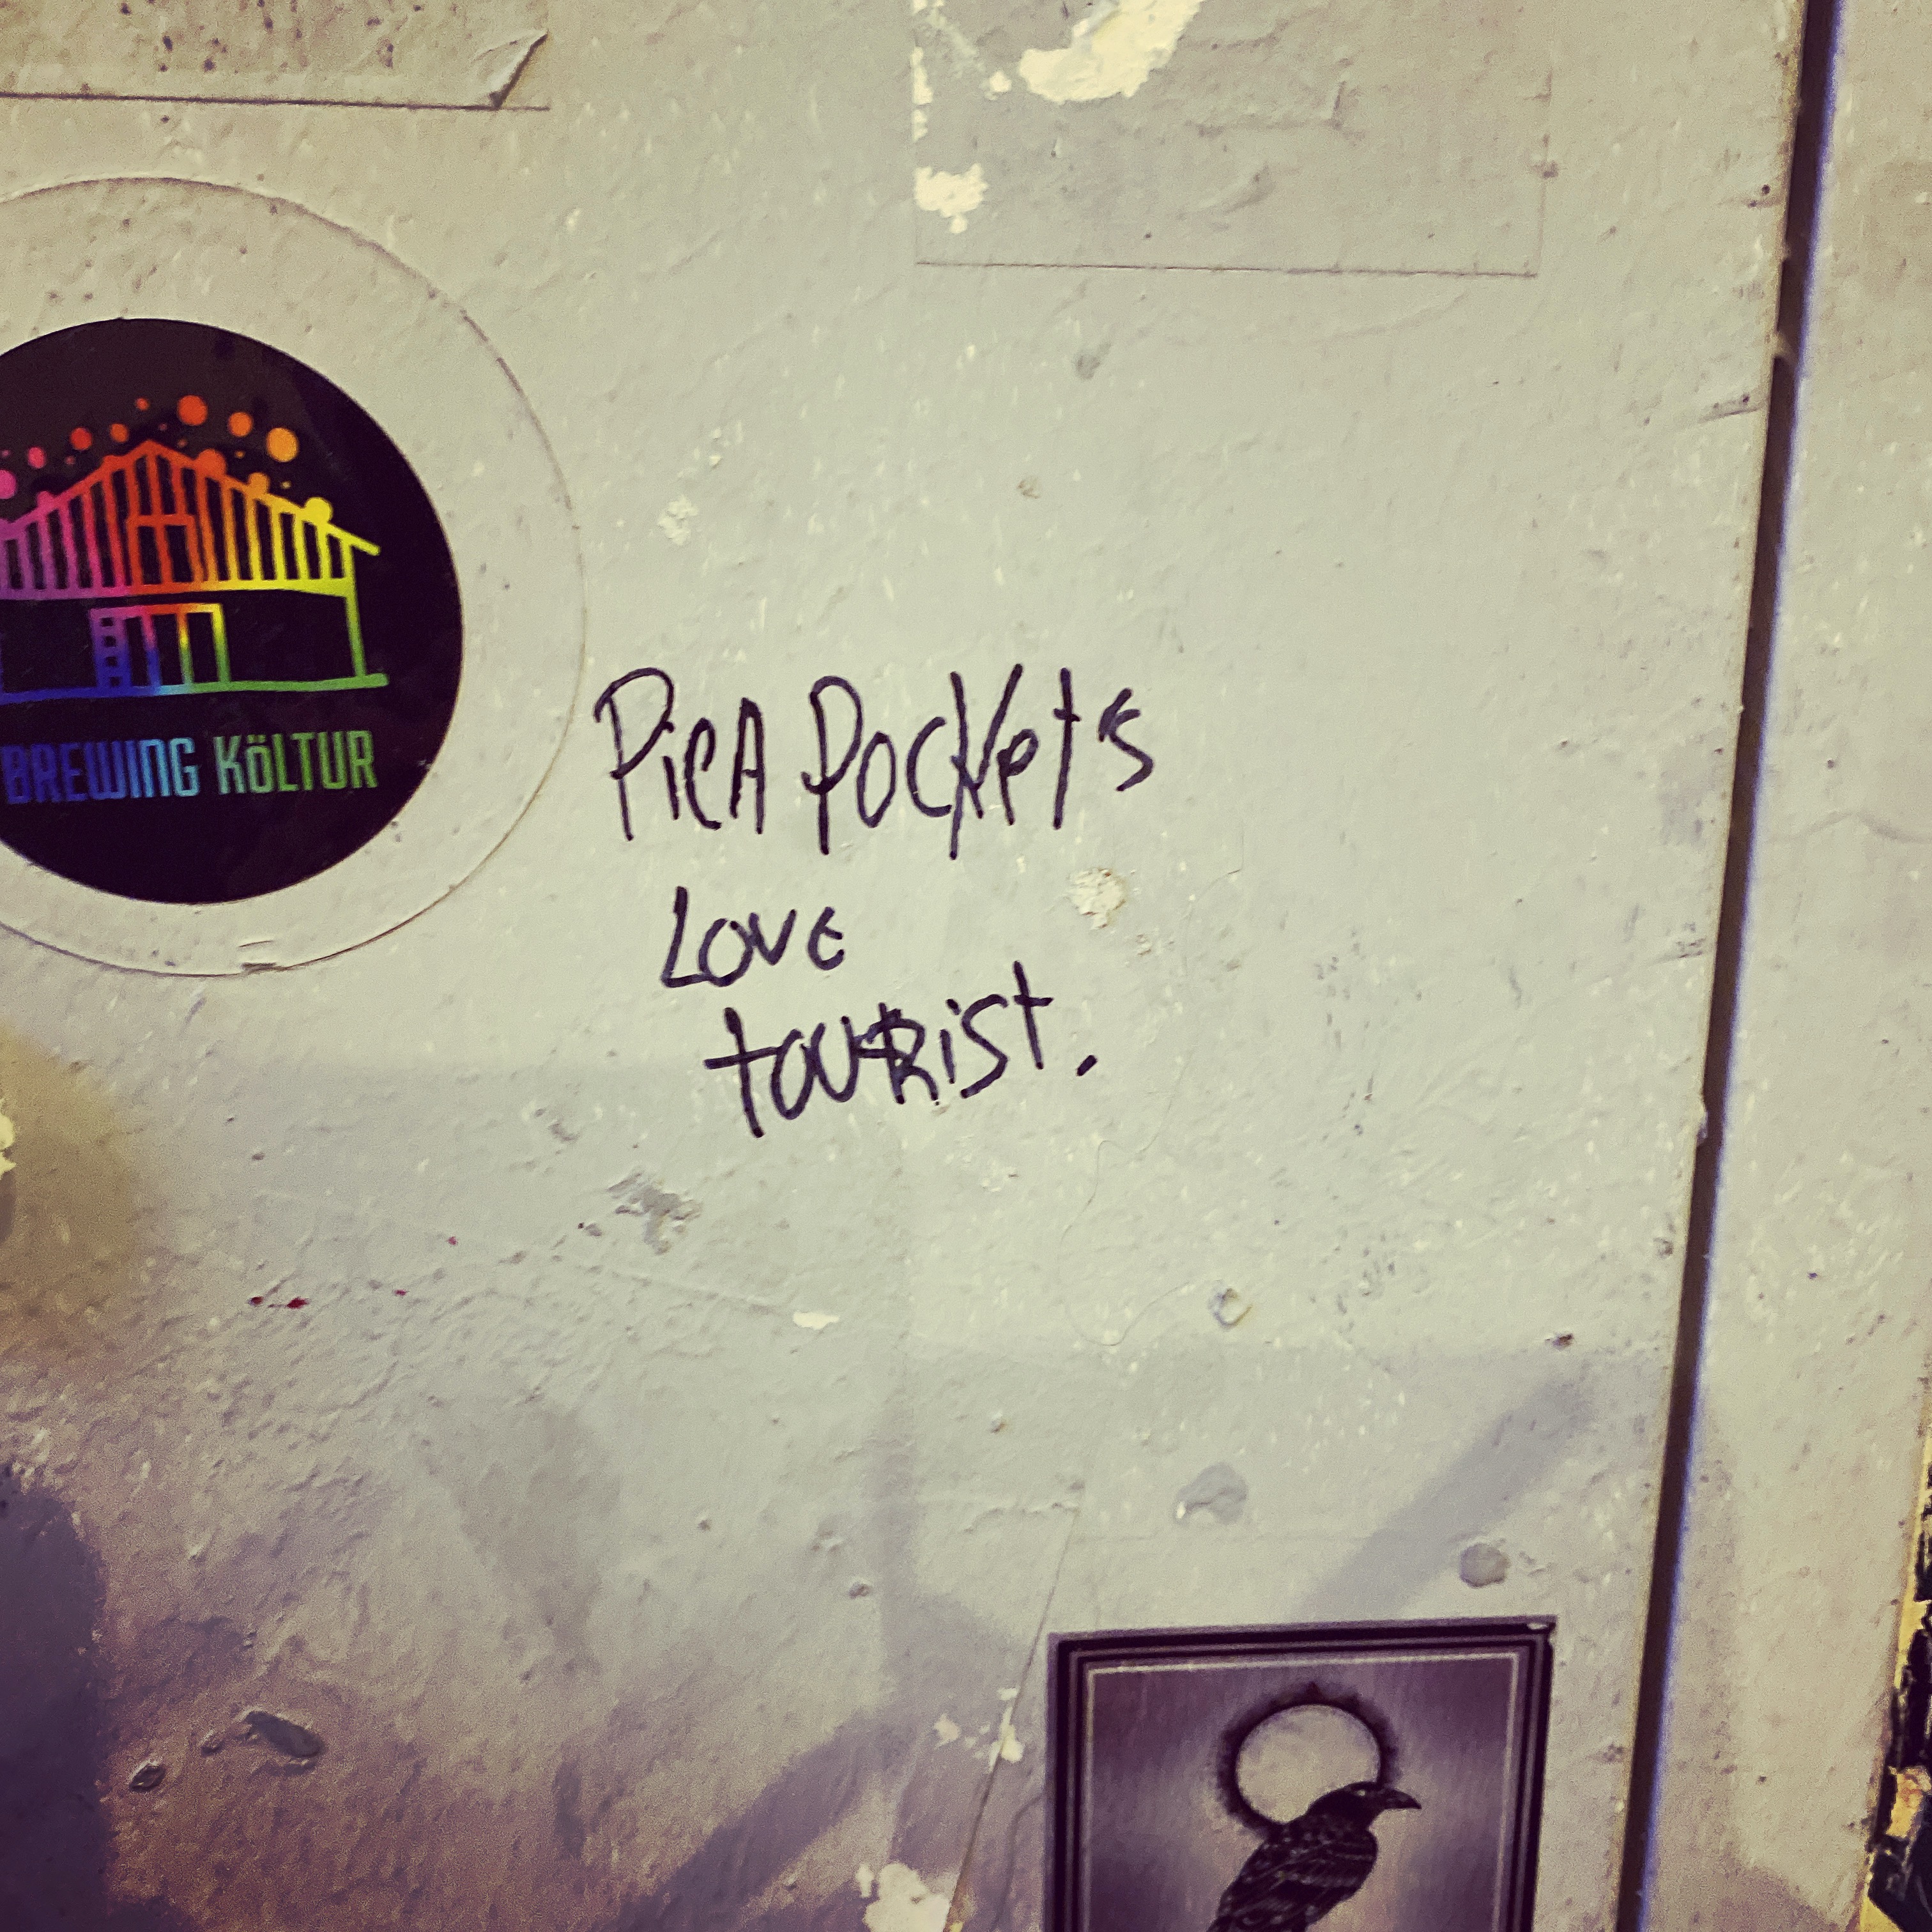 BREWING KÖLTUR
PicA Pocket's
Love
touRist.